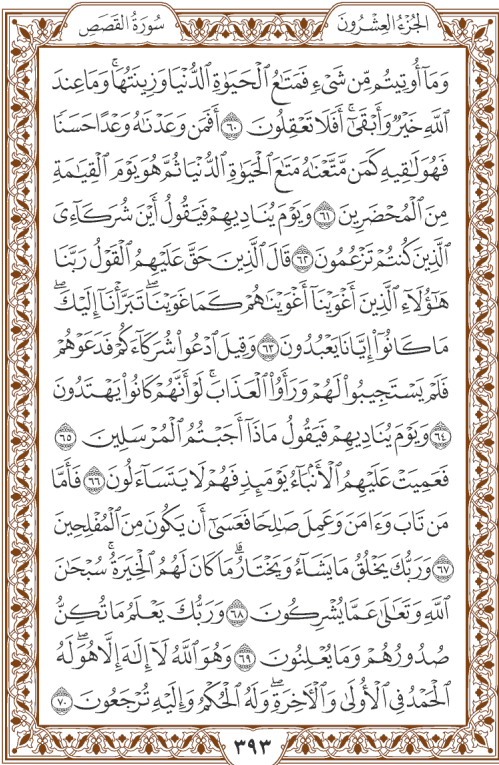 الجُزْءُ العِشْرُونَ
سُورَةُ القَصَصِ
وَمَآ أُوتِيتُم مِّن شَيْءٖ فَمَتَٰعُ ٱلْحَيَوٰةِ ٱلدُّنْيَا وَزِينَتُهَاۚ وَمَا عِندَ
ٱللَّهِ خَيْرٞ وَأَبْقَىٰٓۚ أَفَلَا تَعْقِلُونَ ٦٠ أَفَمَن وَعَدْنَٰهُ وَعْدًا حَسَنٗا
فَهُوَ لَٰقِيهِ كَمَن مَّتَّعْنَٰهُ مَتَٰعَ ٱلْحَيَوٰةِ ٱلدُّنْيَا ثُمَّ هُوَ يَوْمَ ٱلْقِيَٰمَةِ
مِنَ ٱلْمُحْضَرِينَ ٦١ وَيَوْمَ يُنَادِيهِمْ فَيَقُولُ أَيْنَ شُرَكَآءِيَ
ٱلَّذِينَ كُنتُمْ تَزْعُمُونَ ٦٢ قَالَ ٱلَّذِينَ حَقَّ عَلَيْهِمُ ٱلْقَوْلُ رَبَّنَا
هَٰٓؤُلَآءِ ٱلَّذِينَ أَغْوَيْنَآ أَغْوَيْنَٰهُمْ كَمَا غَوَيْنَاۖ تَبَرَّأْنَآ إِلَيْكَۖ
مَا كَانُوٓا۟ إِيَّانَا يَعْبُدُونَ ٦٣ وَقِيلَ ٱدْعُوا۟ شُرَكَآءَكُمْ فَدَعَوْهُمْ
فَلَمْ يَسْتَجِيبُوا۟ لَهُمْ وَرَأَوُا۟ ٱلْعَذَابَۚ لَوْ أَنَّهُمْ كَانُوا۟ يَهْتَدُونَ
٦٤ وَيَوْمَ يُنَادِيهِمْ فَيَقُولُ مَاذَآ أَجَبْتُمُ ٱلْمُرْسَلِينَ ٦٥
فَعَمِيَتْ عَلَيْهِمُ ٱلْأَنۢبَآءُ يَوْمَئِذٖ فَهُمْ لَا يَتَسَآءَلُونَ ٦٦ فَأَمَّا
مَن تَابَ وَءَامَنَ وَعَمِلَ صَٰلِحٗا فَعَسَىٰٓ أَن يَكُونَ مِنَ ٱلْمُفْلِحِينَ
٦٧ وَرَبُّكَ يَخْلُقُ مَا يَشَآءُ وَيَخْتَارُۗ مَا كَانَ لَهُمُ ٱلْخِيَرَةُۚ سُبْحَٰنَ
ٱللَّهِ وَتَعَٰلَىٰ عَمَّا يُشْرِكُونَ ٦٨ وَرَبُّكَ يَعْلَمُ مَا تُكِنُّ
صُدُورُهُمْ وَمَا يُعْلِنُونَ ٦٩ وَهُوَ ٱللَّهُ لَآ إِلَٰهَ إِلَّا هُوَۖ لَهُ
ٱلْحَمْدُ فِي ٱلْأُولَىٰ وَٱلْءَاخِرَةِۖ وَلَهُ ٱلْحُكْمُ وَإِلَيْهِ تُرْجَعُونَ ٧٠
٣٩٣